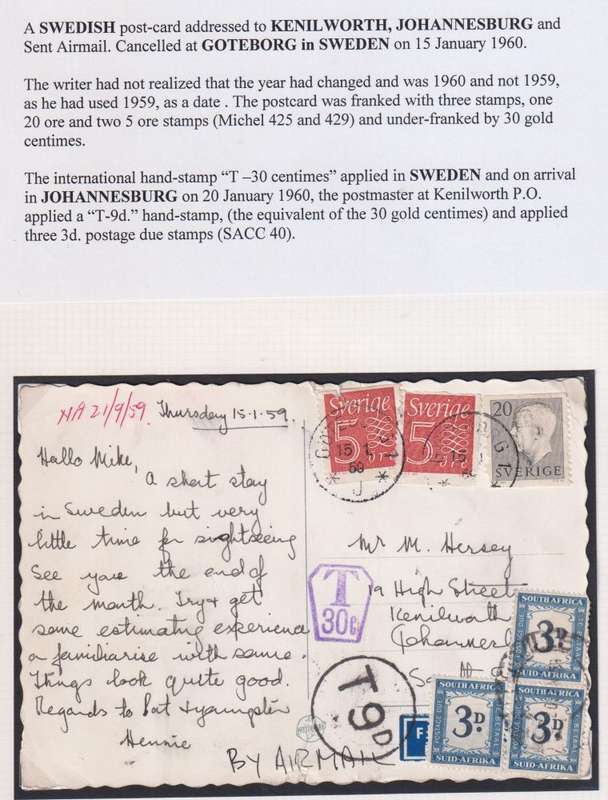 A SWEDISH post-card addressed to KENILWORTH, JOHANNESBURG and
Sent Airmail. Cancelled at GOTEBORG in SWEDEN on 15 January 1960.
The writer had not realized that the year had changed and was 1960 and not 1959,
as he had used 1959, as a date . The postcard was franked with three stamps, one
20 ore and two 5 ore stamps (Michel 425 and 429) and under-franked by 30 gold
centimes.
The international hand-stamp “T –30 centimes” applied in SWEDEN and on arrival
in JOHANNESBURG on 20 January 1960, the postmaster at Kenilworth P.O.
applied a “T-9d.” hand-stamp, (the equivalent of the 30 gold centimes) and applied
three 3d. postage due stamps (SACC 40).
21/9/59
Thursday 15.1.59
Hallo Mike,
A short stay
in Sweden but very
little time for sightseeing
See you the end of
the month. Try & get
some estimating experience
or familiarise with same.
Things look quite good.
Regards to Pat & youngster
Hennie
BY AIRMAIL
Sverige
5
Sverige
5
20
SVERIGE
15 1
59
15
Mr M. Hersey
19 High Street
Kenilworth
T
30c
T9D
SOUTH AFRICA
3D.
SUID-AFRIKA
POSTAGE DUE
SOUTH AFRICA
3D.
SUID-AFRIKA
POSTAGE DUE
SOUTH AFRICA
3D.
SUID-AFRIKA